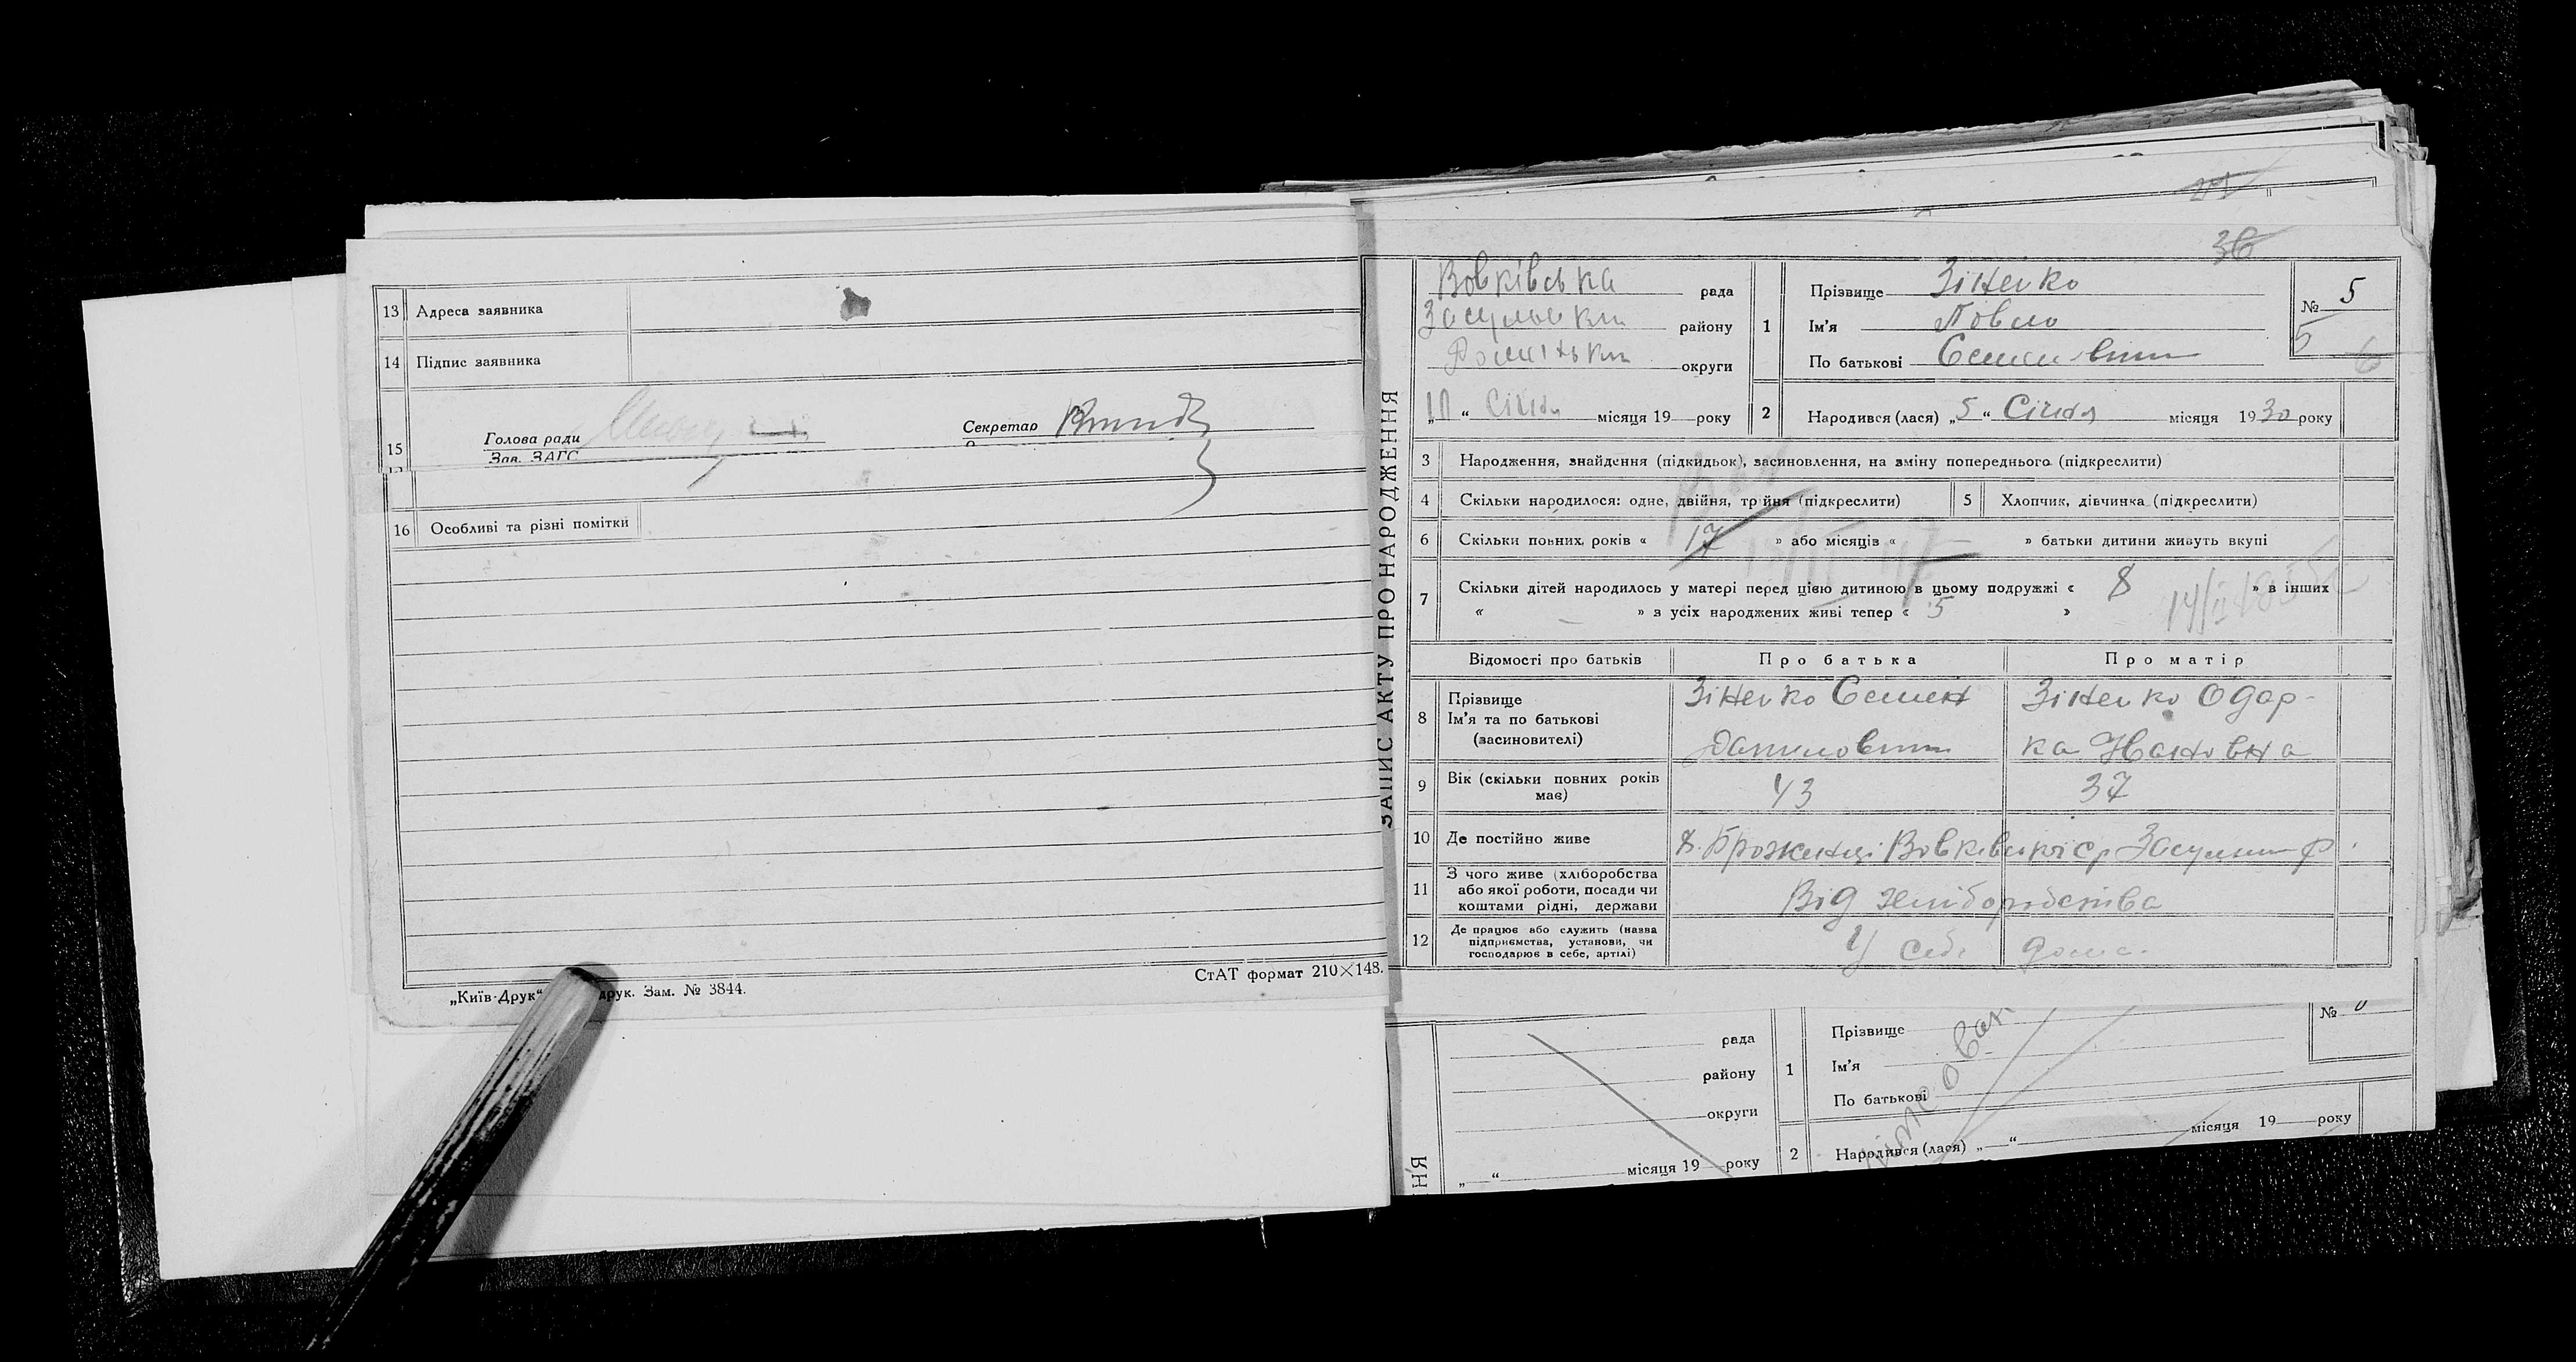 13 Адреса заявника
14 Підпис заявника
15 Голова ради Секретар
Зав. ЗАГС
16 Особливі та різні помітки
СтАТ формат 210×148.
„Київ-Друк“ друк. Зам. № 3844.
ЗАПИС АКТУ ПРО НАРОДЖЕННЯ
36
Вовківська рада
району
округи
„ “ Січня місяця 19 року
1 Прізвище Зіненко
Ім'я Повло
По батькові Семенович
№ 5
5
6
2 Народився (лася) „5“ Січня місяця 1930 року
3 Народження, знайдення (підкидьок), засиновлення, на зміну попереднього (підкреслити)
4 Скільки народилося: одне, двійня, трійня (підкреслити) 5 Хлопчик, дівчинка (підкреслити)
6 Скільки повних років « 17 » або місяців « » батьки дитини живуть вкупі
7 Скільки дітей народилось у матері перед цією дитиною в цьому подружжі « 8 » в інших
« – » з усіх народжених живі тепер « 5 »
Відомості про батьків Про батька Про матір
8 Прізвище Ім'я та по батькові (засиновителі)
Зіненко Семен Данилович
Зіненко Одар-
ка Івановна
9 Вік (скільки повних років має) 43 37
10 Де постійно живе
11 З чого живе (хліборобства або якої роботи, посади чи коштами рідні, держави
Від хліборобства
12 Де працює або служить (назва підприємства, установи, чи господарює в себе, артілі)
У себе дома.
рада
району
округи
„ “ місяця 19 року
1 Прізвище
Ім'я
По батькові
№
2 Народився (лася) „ “ місяця 19 року
НЯ